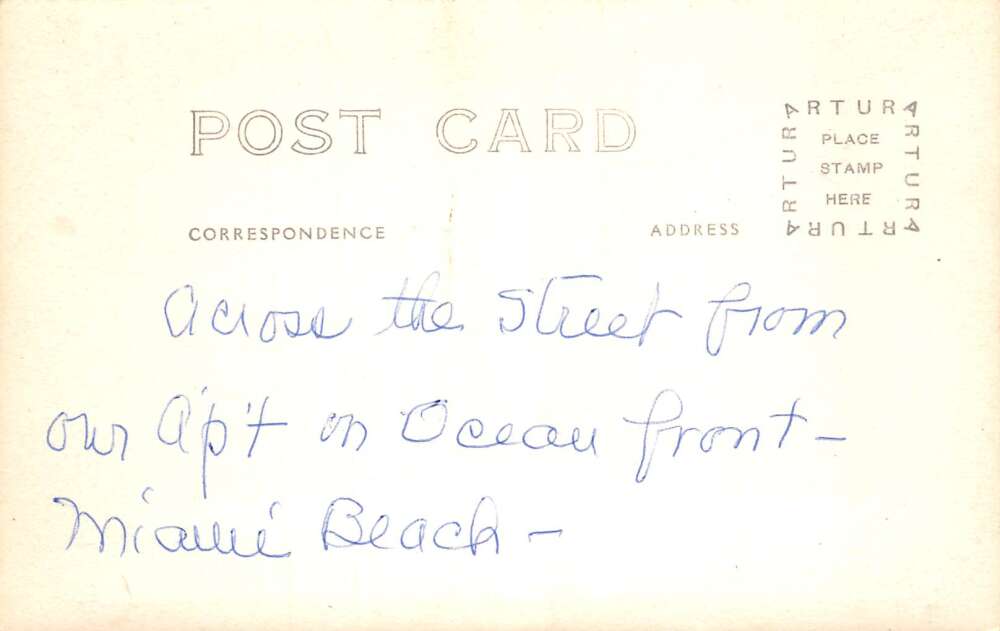 POST CARD
ARTURA
PLACE
STAMP
HERE
ARTURA
ARTURA
ARTURA
CORRESPONDENCE
ADDRESS
Across the Street from
our Ap't on Ocean front –
Miami Beach –